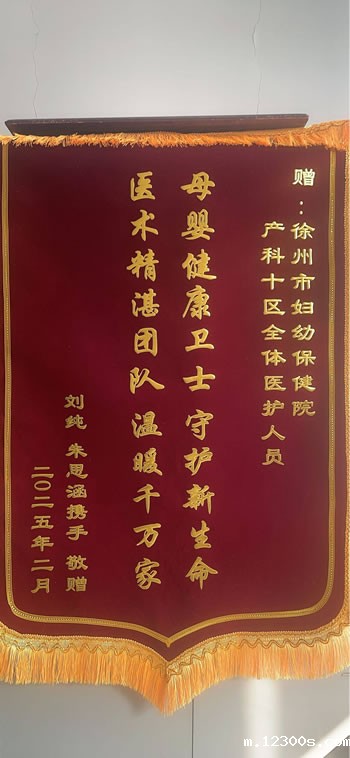 赠：徐州市妇幼保健院
产科十区全体医护人员
母婴健康卫士 守护新生命
医术精湛团队 温暖千万家
刘纯 朱思涵携手 敬赠
二〇二五年二月
m.12300s.com